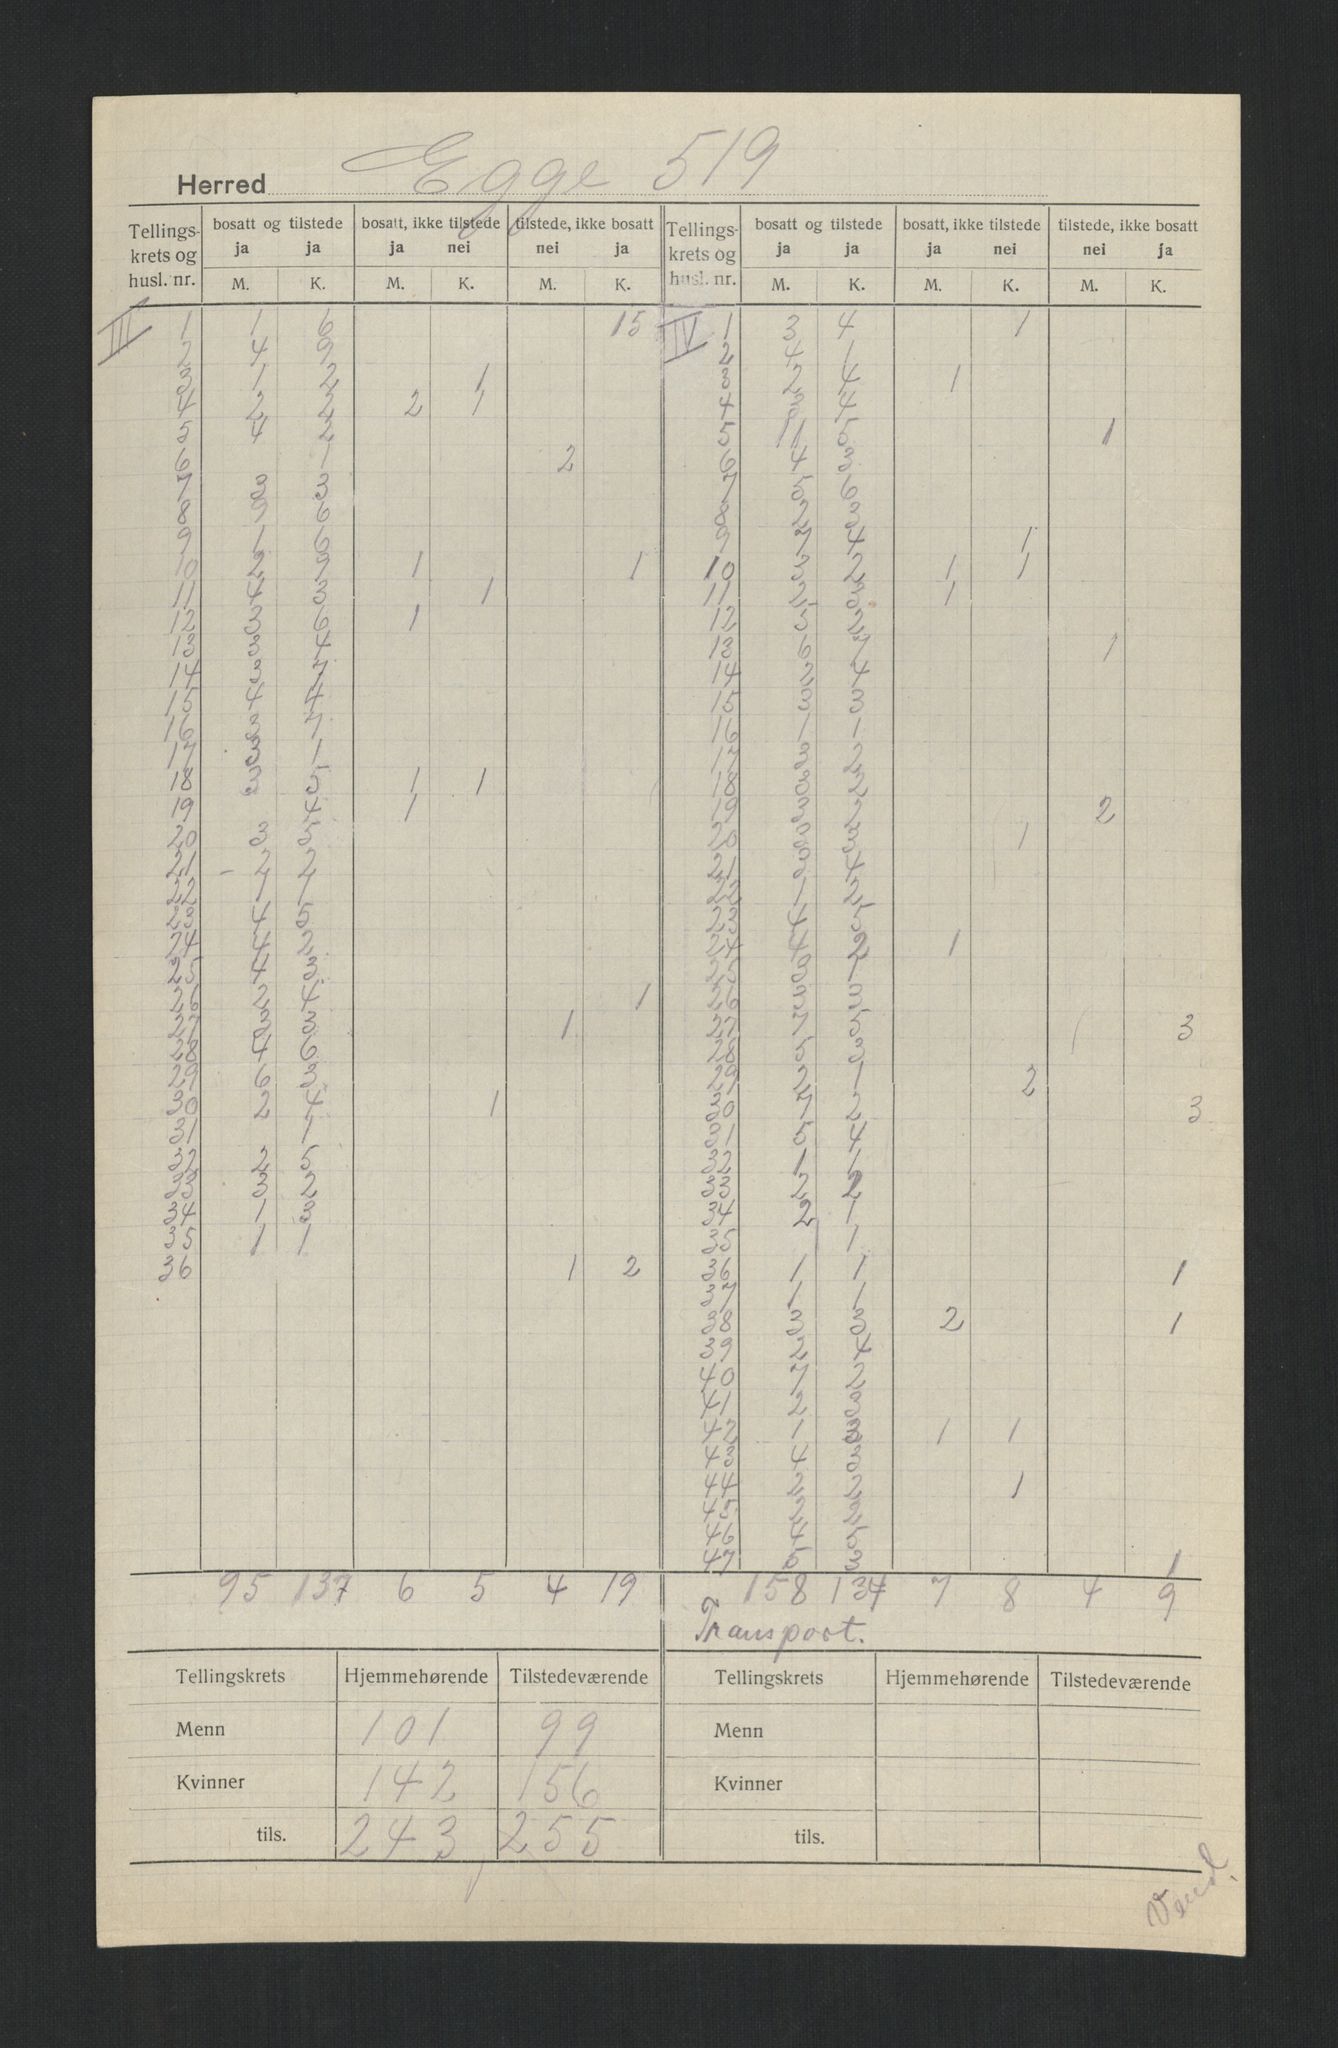 Herred Egge 519
Tellingskrets og husl. nr. bosatt og tilstede bosatt, ikke tilstede tilstede, ikke bosatt Tellingskrets og husl. nr. bosatt og tilstede bosatt, ikke tilstede tilstede, ikke bosatt
ja ja ja nei nei ja ja ja ja nei nei ja
M. K. M. K. M. K. M. K. M. K. M. K.
III 1 1 6 15 IV 1 3 4 1
2 4 2 4 1
3 1 2 1 3 2 4 1
4 2 2 2 1 4 4
5 4 2 5 11 5 1
6 1 2 6 4 3
7 3 3 7 6
8 6 8 2
9 1 6 9 4 1
10 2 1 1 10 2 1 1
11 4 3 1 11 1
12 3 6 1 12 5 2
13 3 4 13 6 1
14 3 14 4
15 4 4 15 3 3
16 16 1 1
17 3 1 17 3 2
18 3 5 1 1 18 3 2
19 4 1 19 3 2
20 3 20 3 1
21 2 2 21 3 4
22 1 1 22 1 2
23 4 5 23 4 5
24 4 2 24 4 2 1
25 4 3 25 1
26 2 4 1 26
27 3 3 1 27 3
28 4 6 28
29 6 3 29 2 1 2
30 2 4 1 30 2 3
31 1 31 5 4
32 2 5 32 1 1
33 3 2 33 2 2
34 1 3 34 2 1
35 1 1 35 1
36 1 2 36 1 1 1
37 1 1
38 3 3 2 1
39 2 4
40 2
41 2 3
42 1 3 1 1
43 4 3
44 2 2 1
45 2 2
46 4 5
47 5 3 1
95 137 6 5 4 19 158 134 7 8 4 9
Transport.
Tellingskrets Hjemmehørende Tilstedeværende Tellingskrets Hjemmehørende Tilstedeværende
Menn 101 99 Menn
Kvinner 142 156 Kvinner
tils. 243 255 tils.
Vend.